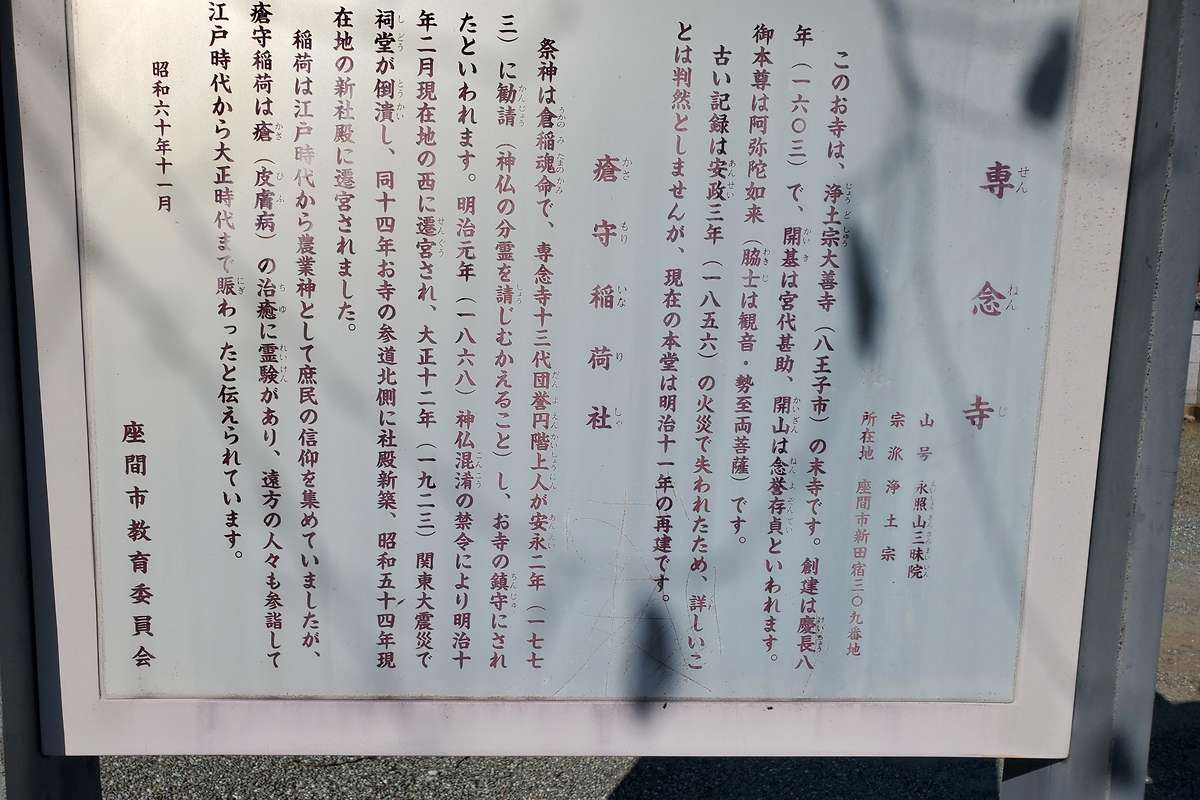 専念寺
山号 永照山三昧院
宗派 浄土宗
所在地 座間市新田宿三〇九番地
このお寺は、浄土宗大善寺（八王子市）の末寺です。創建は慶長八
年（一六〇三）で、開基は宮代甚助、開山は念誉存貞といわれます。
御本尊は阿弥陀如来（脇士は観音・勢至両菩薩）です。
古い記録は安政三年（一八五六）の火災で失われたため、詳しいこ
とは判然としませんが、現在の本堂は明治十一年の再建です。
瘡守稲荷社
祭神は倉稲魂命で、専念寺十三代団誉円階上人が安永二年（一七七
三）に勧請（神仏の分霊を請じむかえること）し、お寺の鎮守にされ
たといわれます。明治元年（一八六八）神仏混淆の禁令により明治十
年二月現在地の西に遷宮され、大正十二年（一九二三）関東大震災で
祠堂が倒潰し、同十四年お寺の参道北側に社殿新築、昭和五十四年現
在地の新社殿に遷宮されました。
稲荷は江戸時代から農業神として庶民の信仰を集めていましたが、
瘡守稲荷は瘡（皮膚病）の治癒に霊験があり、遠方の人々も参詣して
江戸時代から大正時代まで賑わったと伝えられています。
昭和六十年十一月
座間市教育委員会